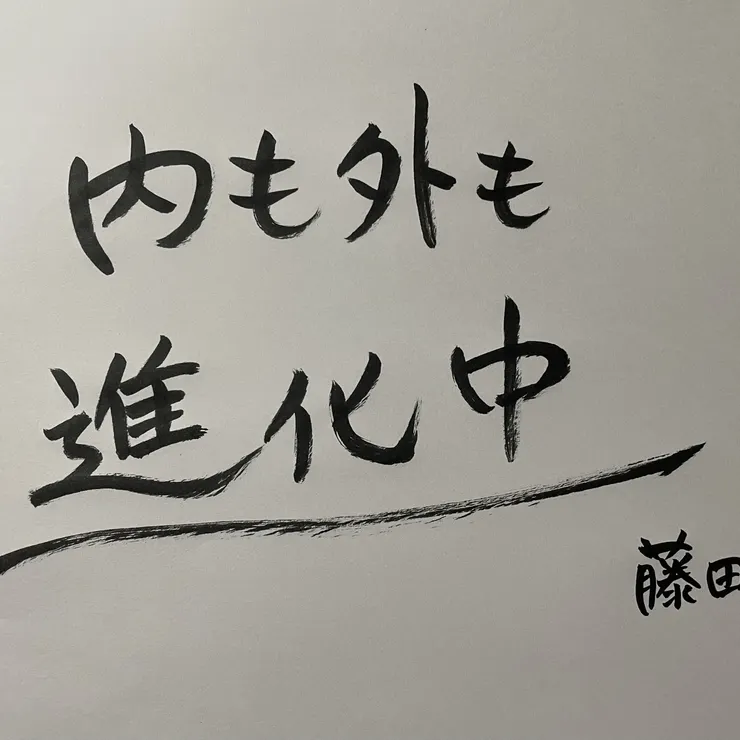 内も外も
進化中
藤田